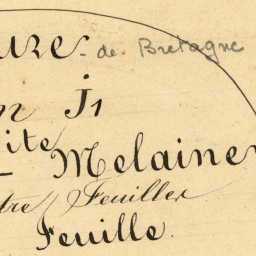 URE - de Bretagne
n J1
ite
Melaine
tre Feuilles
Feuille.